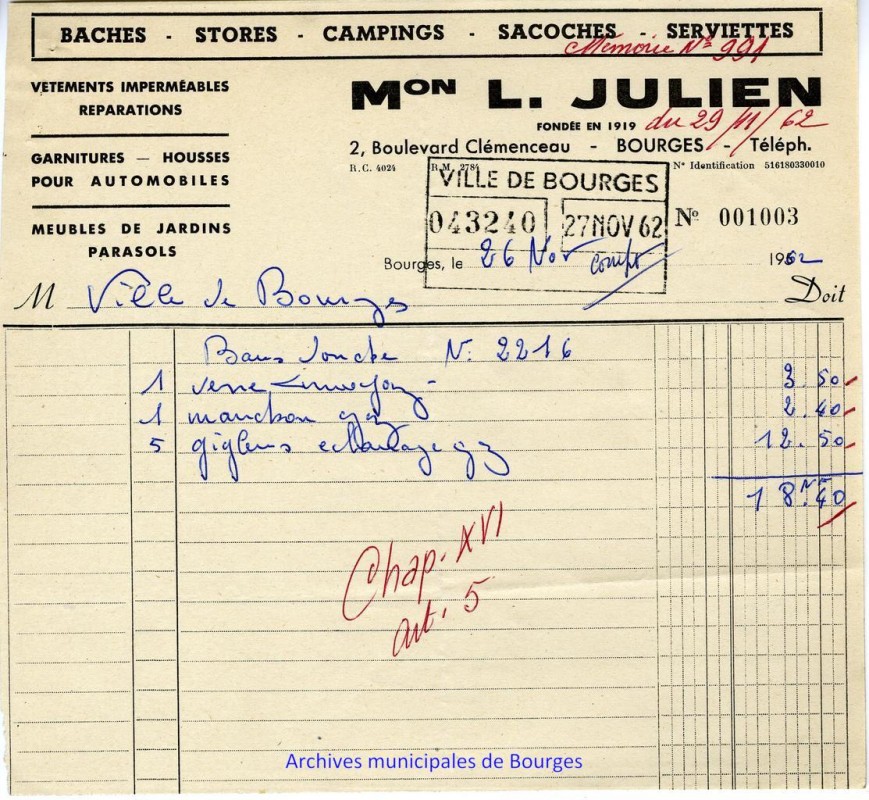 BACHES - STORES - CAMPINGS - SACOCHES - SERVIETTES
Mémoire N° 991
du 29/11/62
VETEMENTS IMPERMÉABLES
REPARATIONS
GARNITURES — HOUSSES
POUR AUTOMOBILES
MEUBLES DE JARDINS
PARASOLS
MON L. JULIEN
FONDÉE EN 1919
2, Boulevard Clémenceau - BOURGES - Téléph.
R.C. 4024 R.M. 2784 N° Identification 516180330010
VILLE DE BOURGES
043240 27 NOV 62
N° 001003
Bourges, le 26 Nov 1962
compt
M Ville de Bourges Doit
Bons N. 2216
1 verre 3.50
1 manchon gaz 2.40
5 eclairage gaz 12.50
18.40
NF
Chap. XVI
art. 5
Archives municipales de Bourges